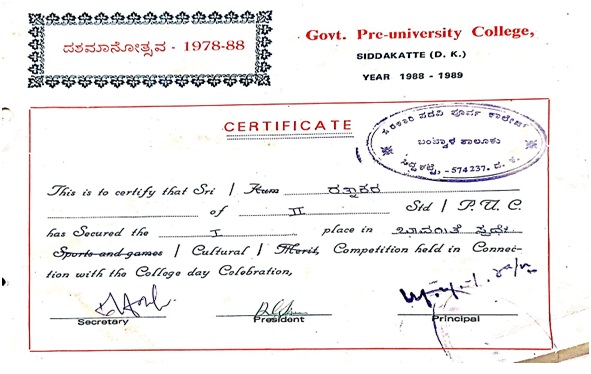 ದಶಮಾನೋತ್ಸವ - 1978-88
Govt. Pre-university College,
SIDDAKATTE (D. K.)
YEAR 1988 - 1989
CERTIFICATE
ಸರಕಾರಿ ಪದವಿ ಪೂರ್ವ ಕಾಲೇಜು
ಬಂಟ್ವಾಳ ತಾಲೂಕು
ಸಿದ್ದಕಟ್ಟೆ, -574237. ದ. ಕ.
This is to certify that Sri / Kum ರತ್ನಾಕರ
of II Std / P. U. C.
has Secured the I place in ಭಾವಗೀತೆ ಸ್ಪರ್ಧೆ
Sports and games / Cultural / Merit, Competition held in Connec-
tion with the College day Celebration,
Secretary
President
Principal